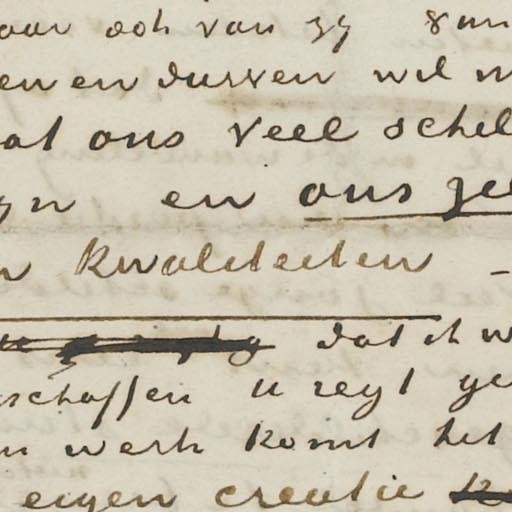 aar ook van zy
en en durven wil
at ons veel schil
yn en ons ge
kwaliteiten -
dat ik w
schaffen u zegt ge
n werk komt het
eigen creatie